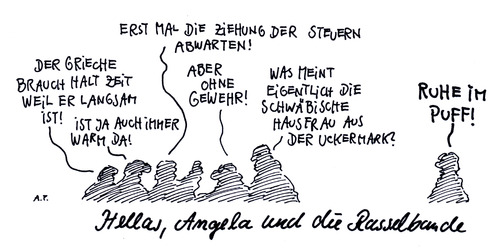 ERST MAL DIE ZIEHUNG DER STEUERN
ABWARTEN!
DER GRIECHE
BRAUCH HALT ZEIT
WEIL ER LANGSAM
IST!
IST JA AUCH IMMER
WARM DA!
ABER
OHNE
GEWEHR!
WAS MEINT
EIGENTLICH DIE
SCHWÄBISCHE
HAUSFRAU AUS
DER UCKERMARK?
RUHE IM
PUFF!
A.F.
Hellas, Angela und die Rasselbande